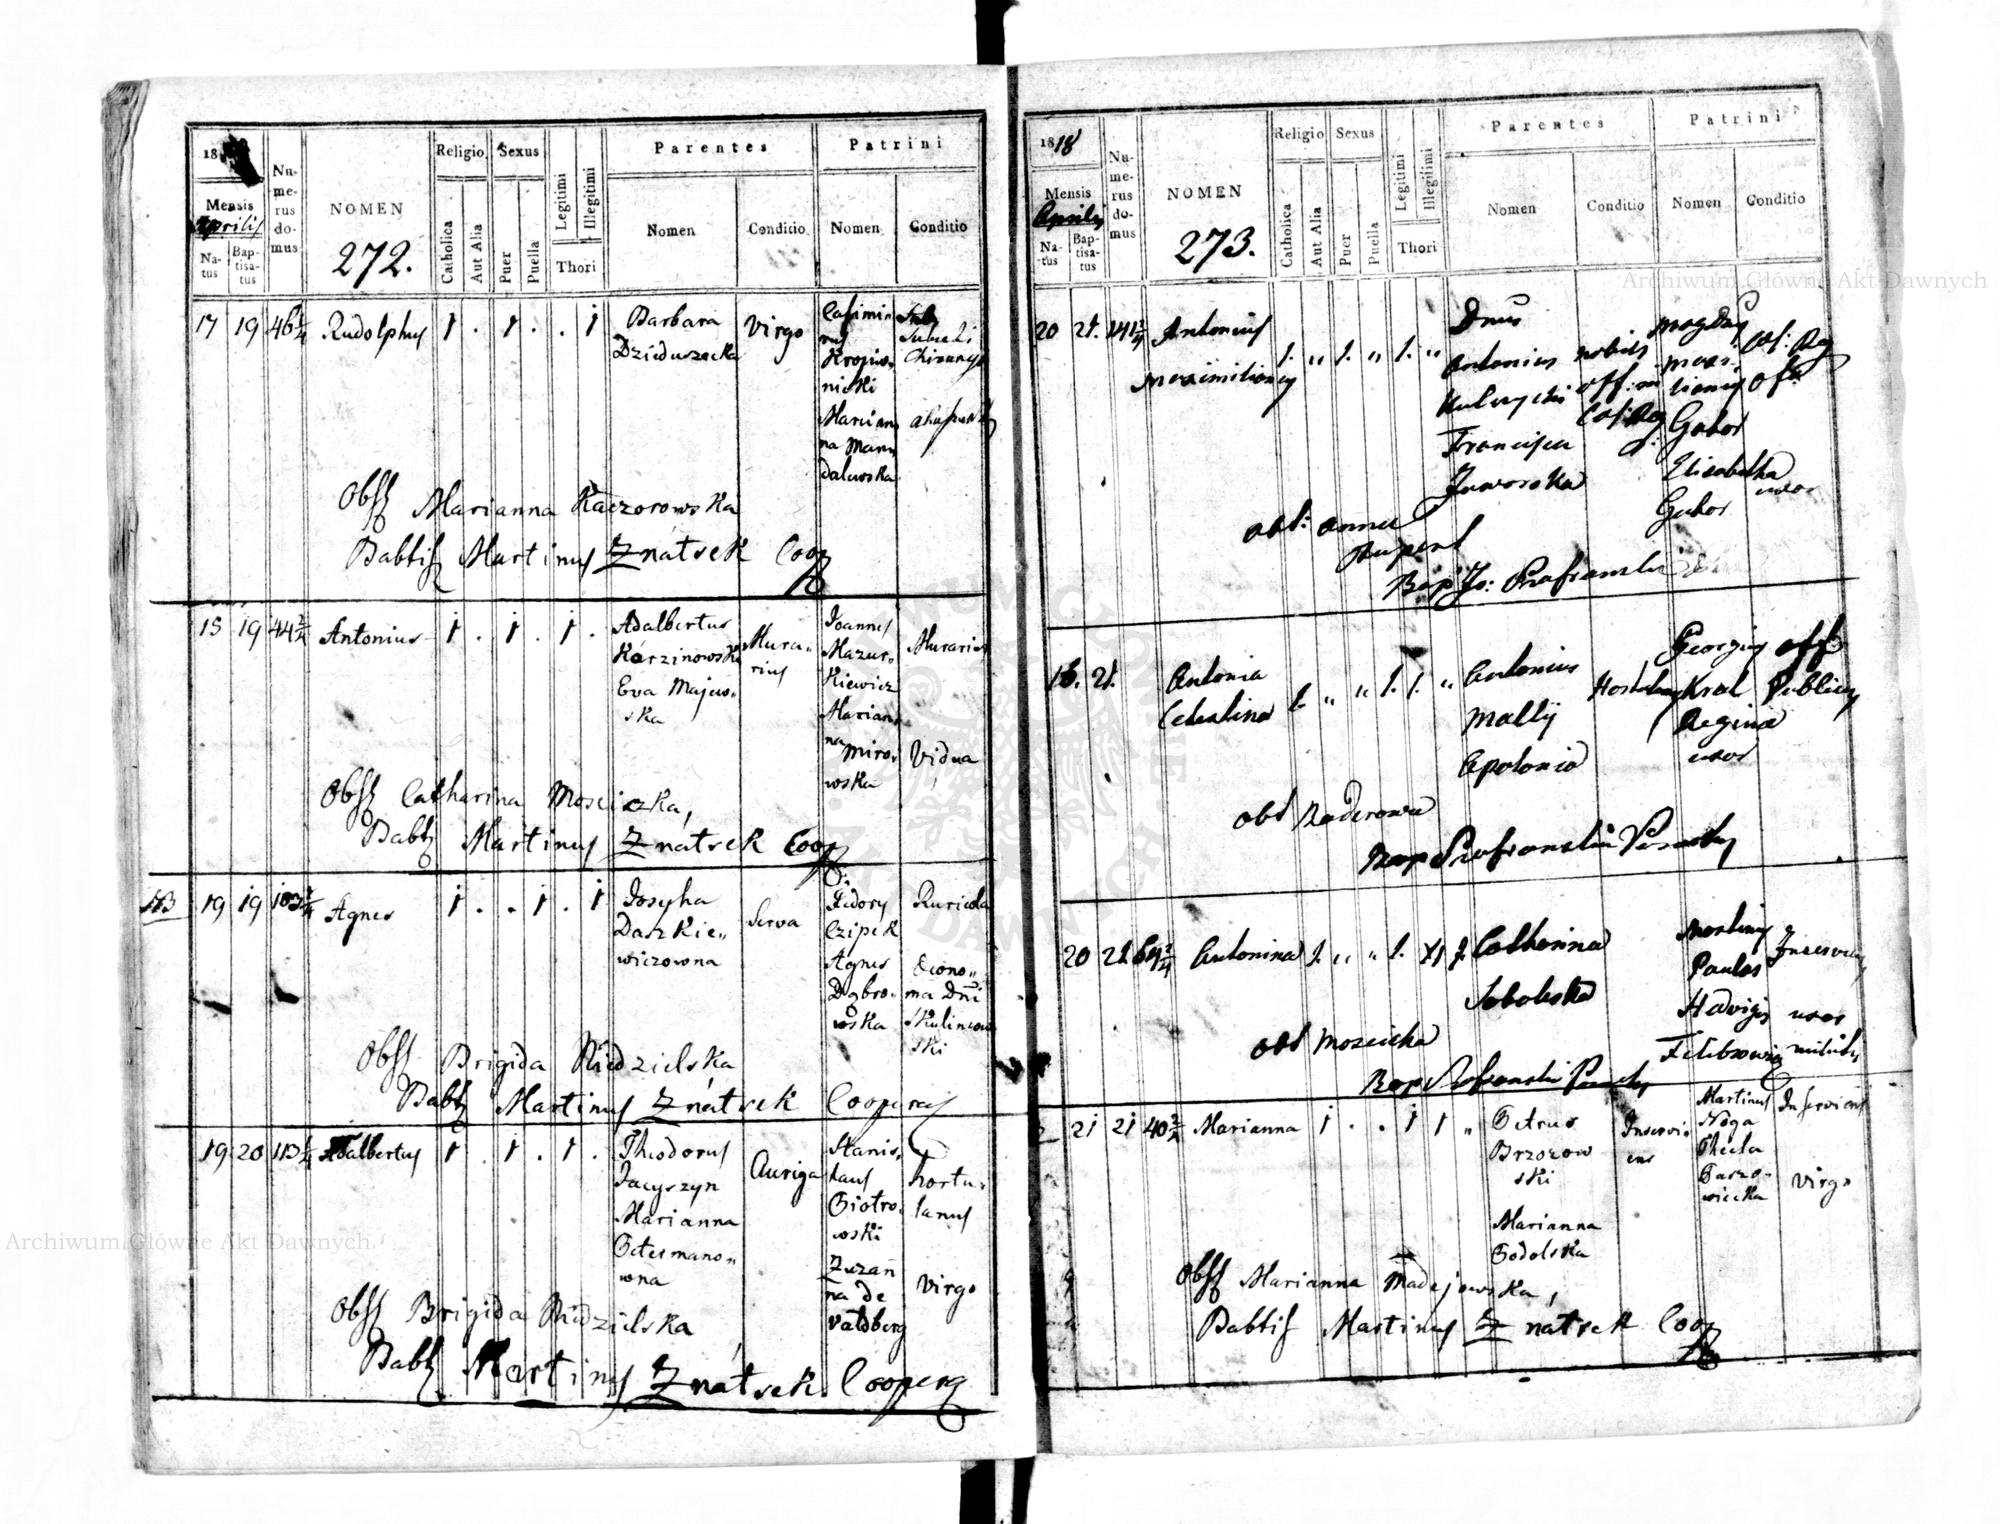 18
Mensis
Aprilis
Natus
Baptisatus
Numerus domus
NOMEN
272.
Religio
Catholica
Aut Alia
Sexus
Puer
Puella
Legitimi
Illegitimi
Thori
Parentes
Nomen
Conditio
Patrini
Nomen
Conditio
17 19 46 1/4 Rudolphus 1 . 1 . . 1
Barbara
Dzieduszecka
Virgo
Casimi-
rus
Kropiw-
nicki
Marian
na Man
dalewska
Obst Marianna Kaczorowska
Babtis Martinus Znatrek Coop
15 19 44 2/4 Antonius 1 . 1 . 1 .
Adalbertus
Karzinowski
Eva Majew-
ska
Mura-
rius
Joannes
Mazur-
kiewicz
Marian-
na Miro-
wska
Murarius
Vidua
Obst Catharina Mosciczka,
Babt Martinus Znatrek Coop
19 19 103 2/4 Agnes 1 . . 1 . 1
Josepha
Daszkie-
wiczowna
Serva
Fedory
Czipik
Agnes
Dąbro-
wska
Ruricola
Econo-
ma Dni
Skulinow
ski
Obst Brigida Niedzielska
Babt Martinus Znatrek Cooperas
19 20 113 1/4 Adalbertus 1 . 1 . 1 .
Theodorus
Jacyszyn
Marianna
Petermano-
wna
Auriga
Stanis-
laus
Piotro-
wski
Zuzan
na de
Valdberg
hortu-
lanus
Virgo
Obst Brigida Niedzielska
Babt Martinus Znatrek Cooperq
1818
Mensis
Aprilis
Natus
Baptisatus
Numerus domus
NOMEN
273.
Religio
Catholica
Aut Alia
Sexus
Puer
Puella
Legitimi
Illegitimi
Thori
Parentes
Nomen
Conditio
Patrini
Nomen
Conditio
20 21. 141 2/4 Antonius
Maximilianus
1. " 1. " 1. "
Dnus
Antonius
Kulczycki
Francisca
Jaworska
nobilis
off:
Cas: Reg
Magdus
Maxi-
lianus
Gabor
Elisabetha
Gabor
Cas: Reg
offi
uxor
obt: Anna
Rupent
Bap Jo: Szafranski
16. 21.
Antonia
Celestina
1. " " 1. 1. "
Antonius
Mally
Apolonia
Georgius
Kral
Regina
uxor
off
Publicus
obt Raderowa
Bap Szafranski
20 21 64 2/4 Antonina 1. " " 1.
Catharina
Soboleska
Martinus
Paulas
Hedvigis
Inserviens
uxor
militis
obt Moscicka
Bap Szafranski
21 21 40 2/4 Marianna 1 . . 1 1 "
Petrus
Brzozow
ski
Marianna
Podolska
Inservi-
ens
Martinus
Noga
Thecla
Paszo-
wiecka
Inserviens
Virgo
Obst Marianna Madejowska,
Babtis Martinus Znatrek Coop
Archiwum Główne Akt Dawnych
Archiwum Główne Akt Dawnych
ARCHIWUM GŁÓWNE AKT DAWNYCH